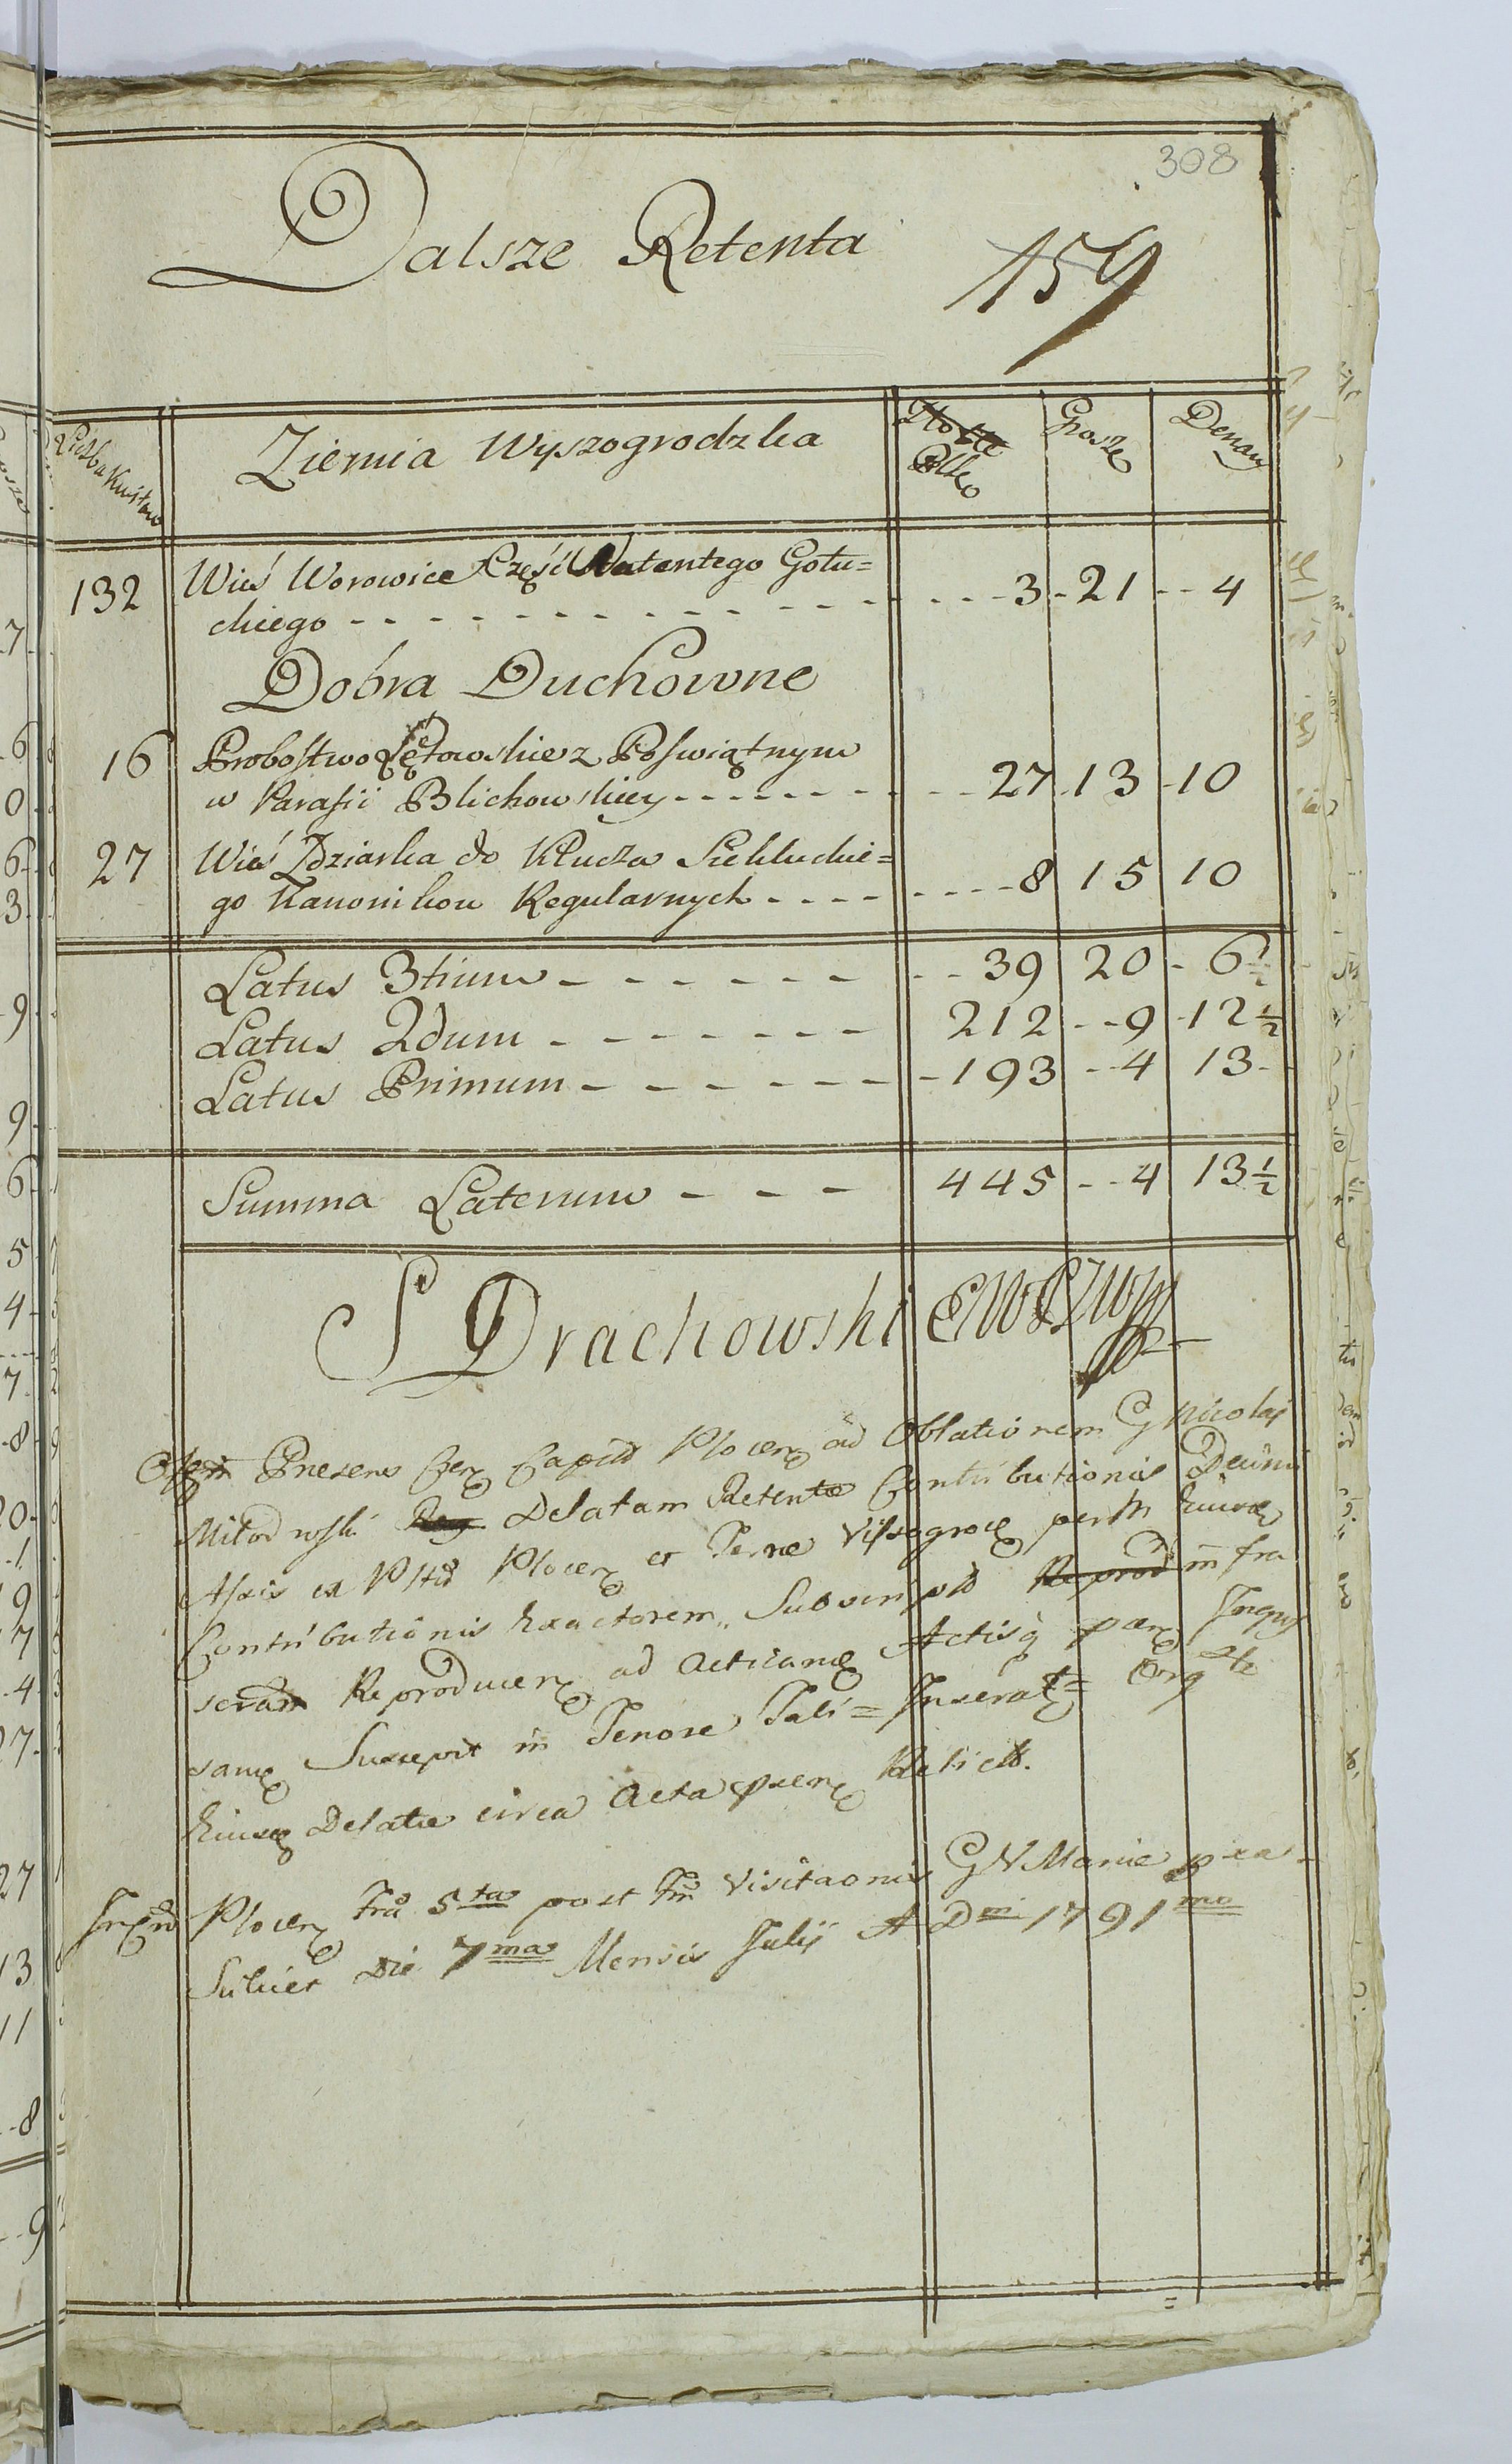 308
Dalsze Retenta
159
Liczba Kwitow
Ziemia Wyszogrodzka
Złote Polk
Grosze
Denary
132 Wieś Worowice Część Walentego Gołu=
chiego - - - 3 - 21 - - 4
Dobra Duchowne
16 Probostwo Łętowskie z Poświątnym
w Parafii Blichowskiey - - - 27 13 10
27 Wieś Zdziarka do Klucza Siekluckie=
go Kanonikow Regularnych - - - 8 15 10
Latus 3tium - - - 39 20 - 6 ½
Latus 2dum - - - 212 - - 9 - 12 ½
Latus Primum - - - 193 - - 4 13 -
Summa Laterum - - - 445 - - 4 13 ½
S Drachowski
Presens Capit Plocen ad Oblationem G Nicolai
Miłodroski Delatam Retente Contributionis Decimi
ex Plocen et Terre Vissogroc per
Contributionis Exactorem Subscript Reprod infra
Reproducen ad Acticand Actisq
Suscepit in Tenore Tali = Inserat
Eiusq Delatu circa Acta Relict.
Plocen Fra 5ta post Fm Visitaonis G V Marie
Die 7ma Mensis Julij A Dni 1791mo